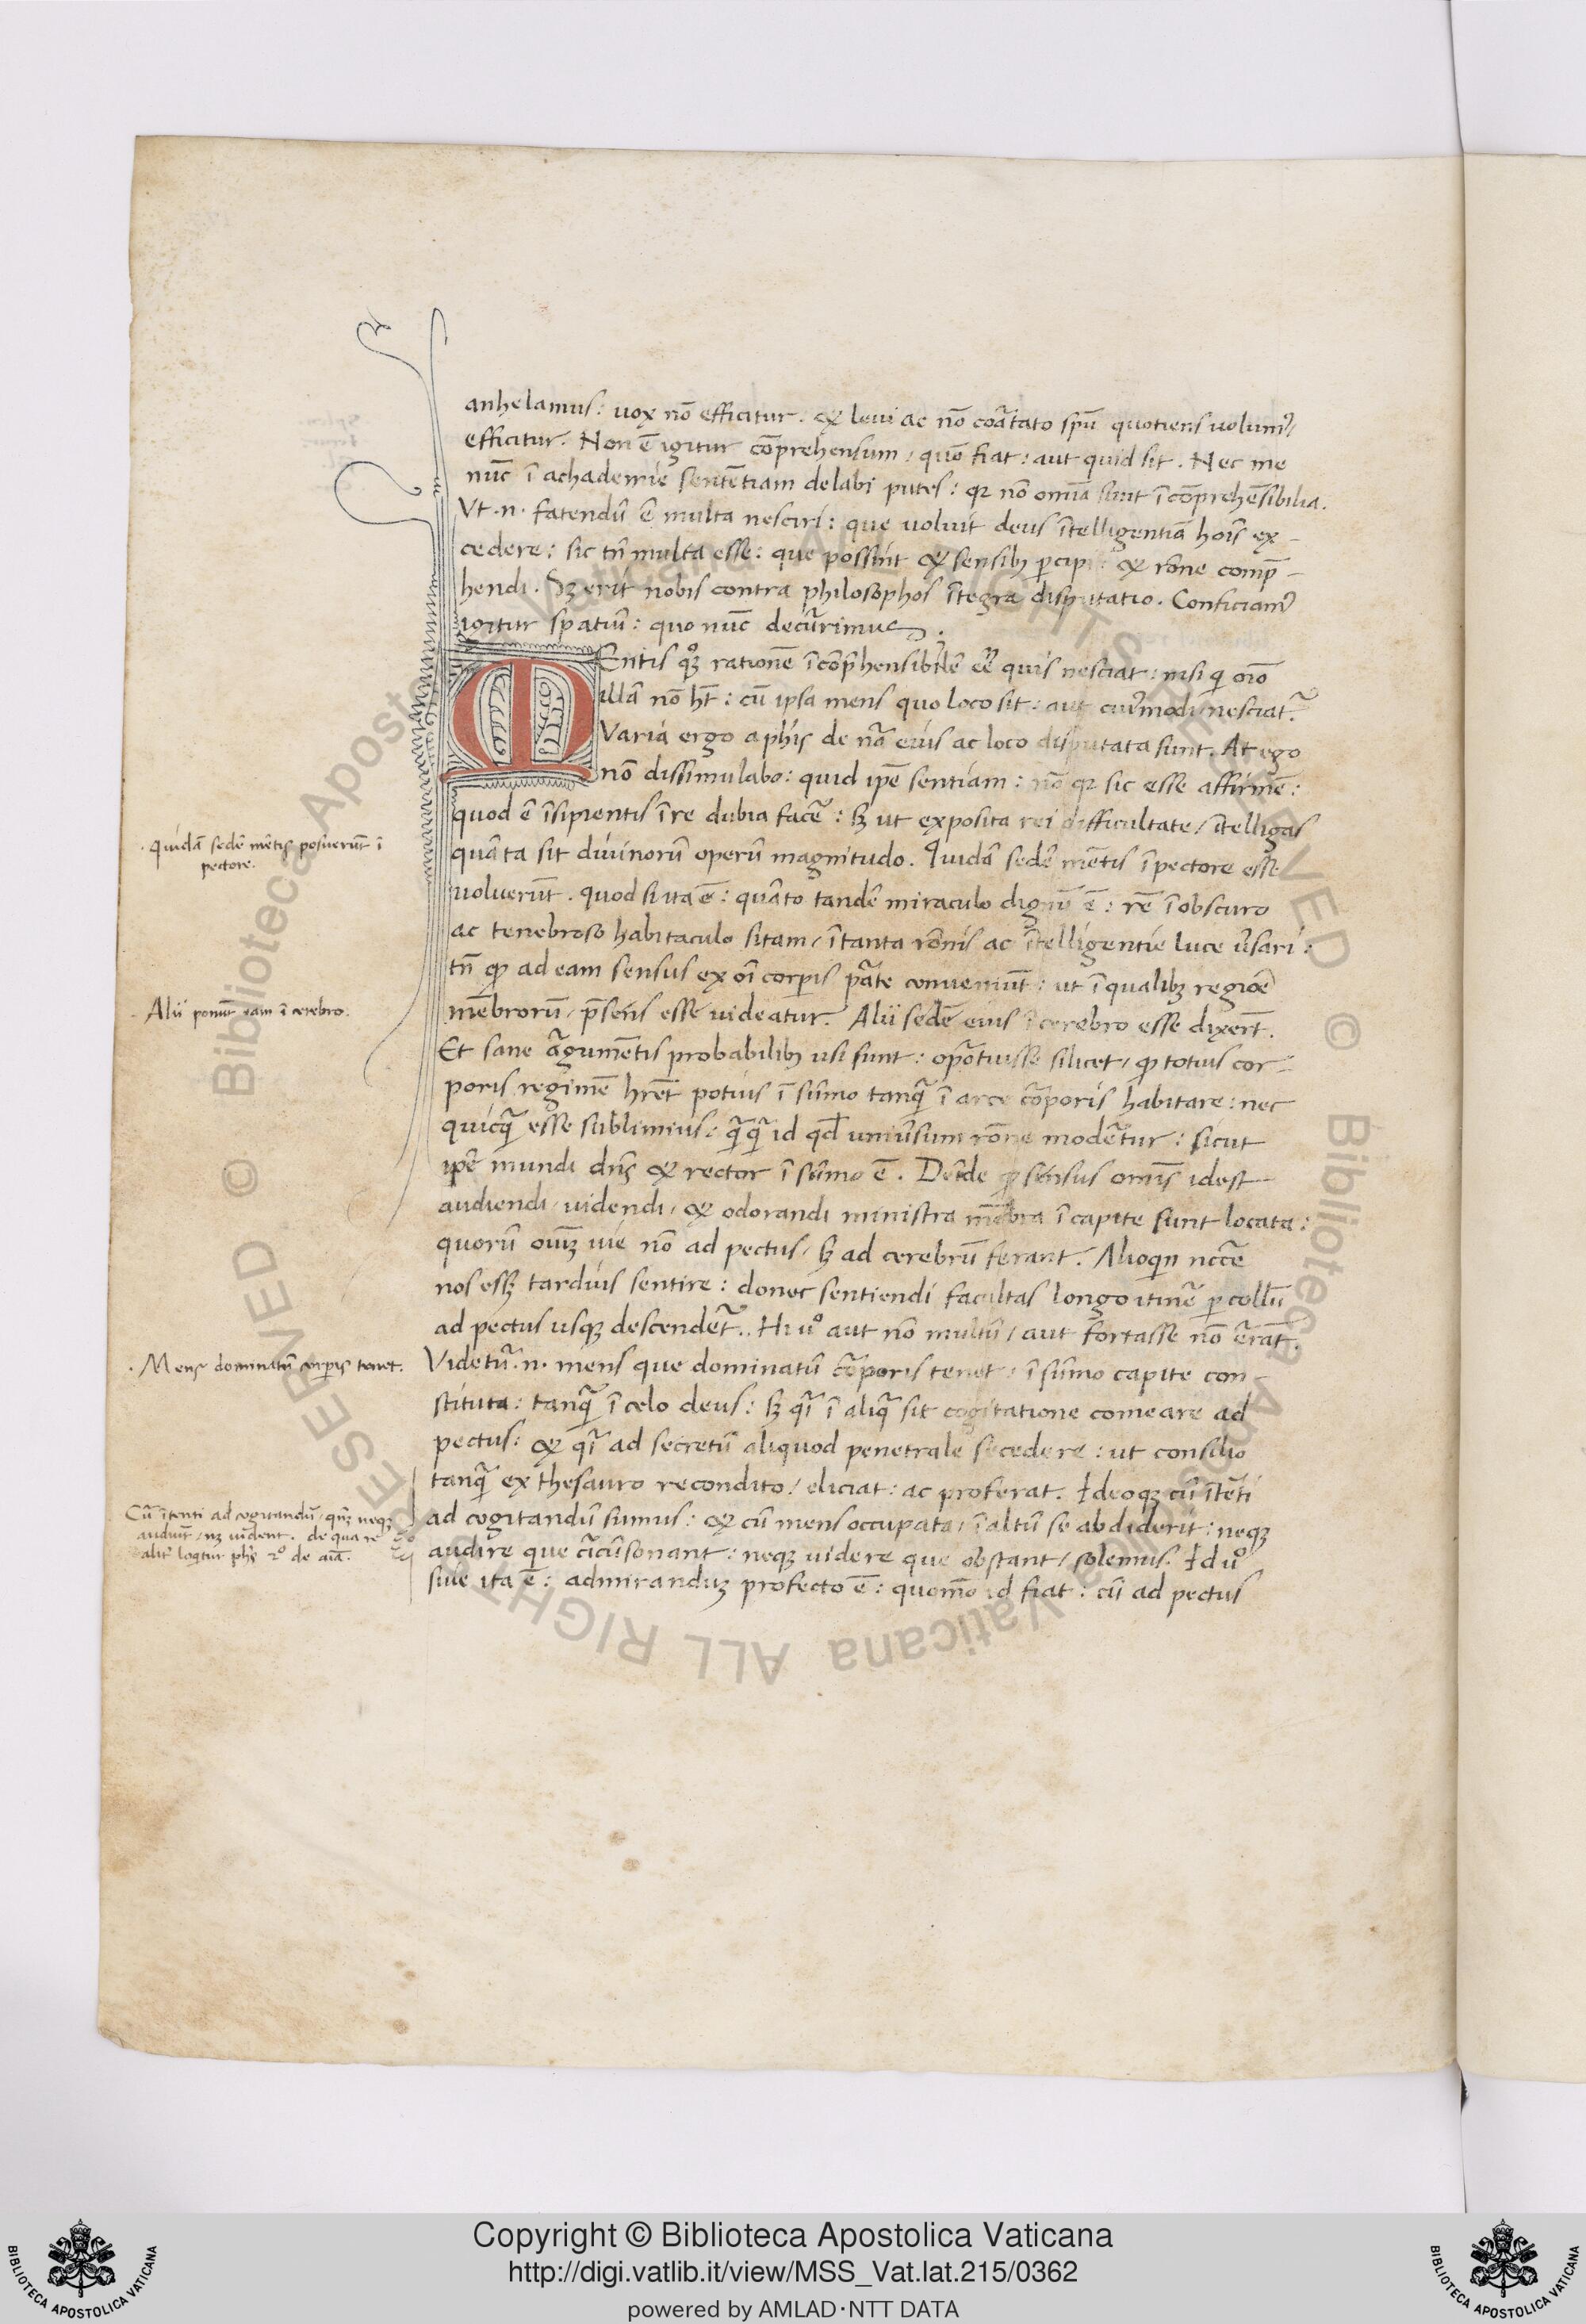 anhelamus: uox nō efficitur. & leui ac nō coartato spū quotiens uolumꝰ/
efficitur. Non ē igitur cōprehensum/ quō fiat: aut quid sit. Nec me
nūc ī achademie sentētiam delabi putes: qꝛ nō omīa sunt īcōprehēsibilia.
Vt .n. fatendū ē multa nesciri: que uoluit deus ītelligentiā hoīs ex-
cedere: sic tn̄ multa esse: que possint & sensibꝫ ꝑcipi: & rōne comp̄-
hendi. Sꝫ erit nobis contra philosophos ītegra disputatio. Conficiamꝰ
igitur spatiū: quo nūc decurrimus.
MEntis quoqꝫ rationē īcōp̄hensibilē eē quis nesciat: nisi qui oīo
illā nō hꝫ: cū ipsa mens quo loco sit: aut cuiꝰmodi nesciat?
Varia ergo a phīs de nā eius ac loco disputata sunt. At ego
nō dissimulabo: quid ipē sentiam: nō qꝛ sic esse affirmē:
quod ē īsipientis ī re dubia facē: sꝫ ut exposita rei difficultate/ ītelligas
quāta sit diuinorū operū magnitudo. Quidā sedē mētis ī pectore esse
uoluerūt. quod si ita ē: quāto tandē miraculo dignū ē: rē ī obscuro
ac tenebroso habitaculo sitam/ ī tanta rōnis ac ītelligentie luce uersari:
tn̄ ꝙ ad eam sensus ex oī corporis parte conueniūt: ut ī qualibꝫ regiōe
mēbrorū/ p̄sens esse uideatur. Alii sedē eius ī cerebro esse dixerūt.
Et sane argumētis probabilibꝫ usi sunt: oportuisse silicet/ ꝙ totius cor-
poris regimē hr̄et potius ī sūmo tanquā ī arce corporis habitare: nec
quicquā esse sublimius/ quā id qđ uniuersum rōne moderetur: sicut
ipē mundi dn̄s & rector ī sūmo ē. Deīde ꝙ sensus omīs idest
audiendi/ uidendi/ & odorandi ministra mēbra ī capite sunt locata:
quorū oīuꝫ uie nō ad pectus/ sꝫ ad cerebrū ferant. Alioqin nccē
nos esset tardius sentire: donec sentiendi facultas longo itinere ꝑ collū
ad pectus usqꝫ descenderet. Hi uº aut nō multū/ aut fortasse nō errāt.
Videtur .n. mens que dominatū corporis tenet/ ī sūmo capite con-
stituta: tanquā ī celo deus: sꝫ quū ī aliqua sit cogitatione comeare ad
pectus: & quī ad secretū aliquod penetrale secedere: ut consilio
tanquā ex thesauro recondito/ eliciat: ac proferat. Ideoqꝫ cū ītēti
ad cogitandū sumus: & cū mens occupata/ ī altū se abdiderit: neqꝫ
audire que circūsonant: neqꝫ uidere que obstant/ solemus. Id uº
siue ita ē: admiranduꝫ profecto ē: quomō id fiat: cū ad pectus
. Quidā sedē mētis posuerūt ī
pectore.
. Alii ponūt eam ī cerebro.
. Mens dominatū corporis tenet.
Cū ītenti ad cogitandū/ neqꝫ
audiūt/ neqꝫ uident. de qua re
alitꝰ loqtur phs 2º de aīa.
Copyright © Biblioteca Apostolica Vaticana
http://digi.vatlib.it/view/MSS_Vat.lat.215/0362
powered by AMLAD·NTT DATA
BIBLIOTECA APOSTOLICA VATICANA
BIBLIOTECA APOSTOLICA VATICANA
© Biblioteca Apostolica Vaticana ALL RIGHTS RESERVED
© Biblioteca Apostolica Vaticana ALL RIGHTS RESERVED